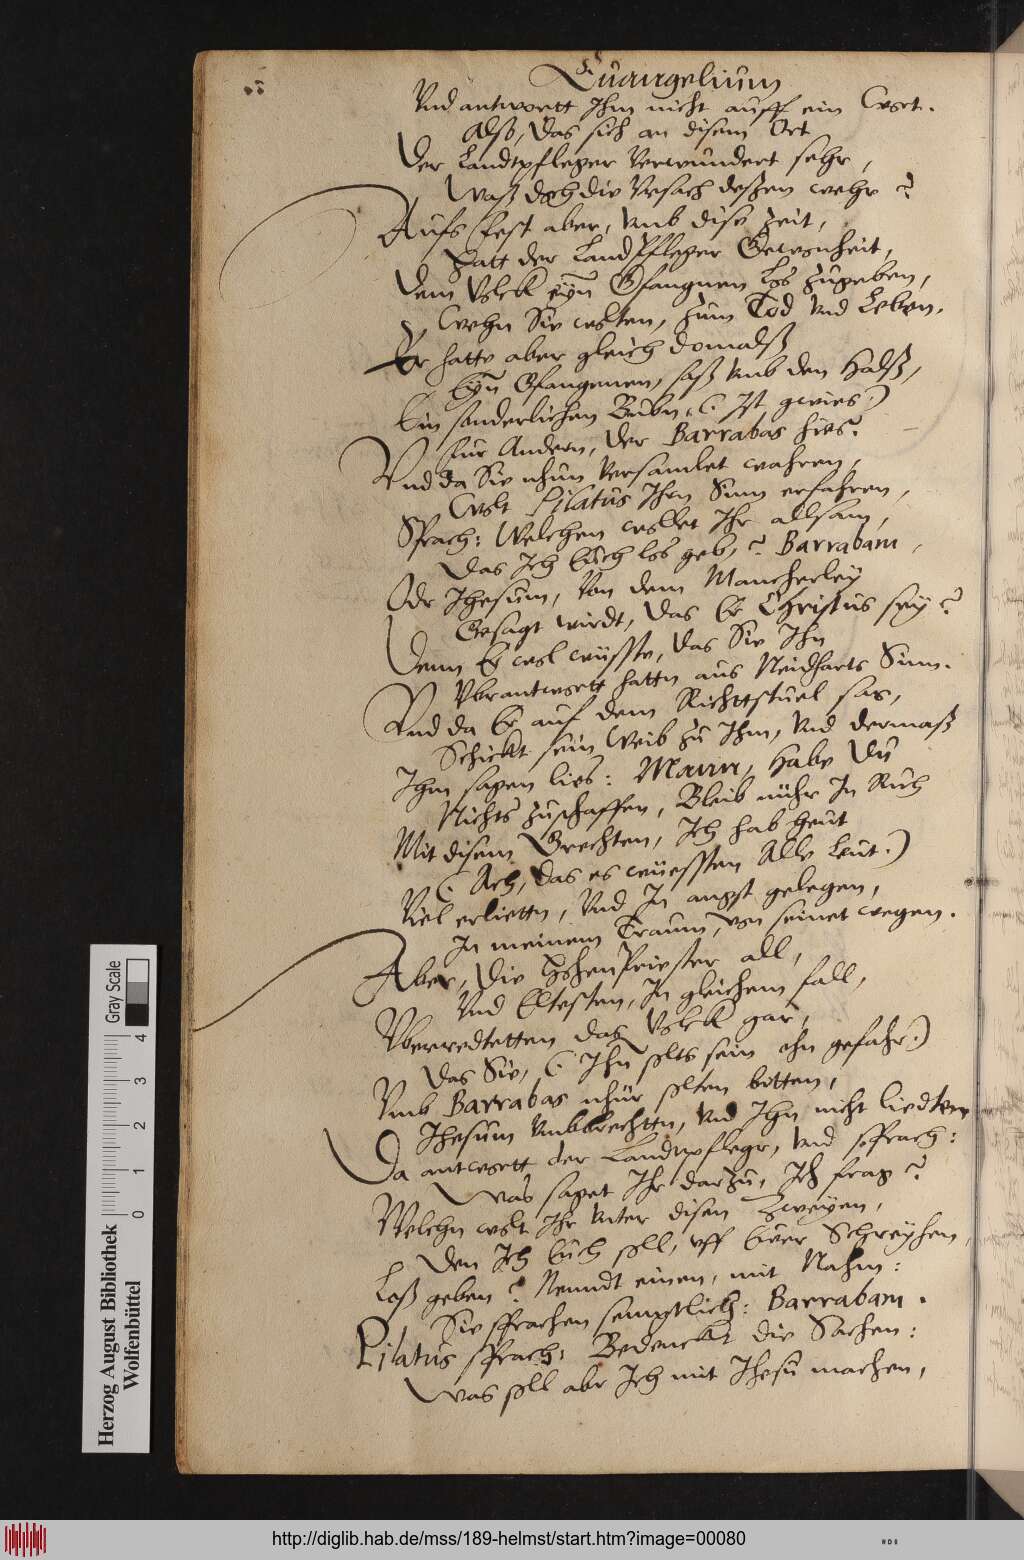 Euangelium
Vnd antwortt Jhm nicht auff ein Wort.
Also, das sich an disem Ort
Der Landtpfleger Verwundert sehr,
Waß doch die Vrsach deßen wehr ?
Aufs fest aber, vmb dise Zeit,
Hatt der LandPfleger Gewonheit,
Dem Volck eyn Gfangnen Los zugeben,
Wehn Sie wolten, zum Tod vnd Leben.
Er hatte aber gleich domalß
Eyn Gfangenen, saß vmb den Halß,
Ein sonderlichen Bubn, (: Ist gwies :)
Fur Andern, der Barrabas hies.
Vnd da Sie nhun Versamlet wahren,
Wolt Pilatus Jhrn Sinn erfahren,
Sprach: Welchen wollet Jhr allsam,
Das Jch Euch los geb, ? Barrabam,
Odr Jhesum, Von dem Mancherley
Gesagt wirdt, das Er Christus sey ?
Denn Er wol wusste, das Sie Jhn
Vbrantwortt hattn aus Neidharts Sinn.
Vnd da Er auf dem Richttstuel sas,
Schickt sein Weib zu Jhm, Vnd dermaß
Jhm sagen lies: Mann, Habe Du
Nichts zuschaffen, Bleib nuhr Jn Ruh
Mit disem Grechten, Jch hab heut
(: Ach, das es wuessten Alle Leut :)
Viel erliettn, Vnd Jn angst gelegen,
Jn meinem Traum, von seinet wegen.
Aber, die HohenPriester all,
Vnd Eltesten, Jn gleichem fall,
Vberredtetten das Volck gar,
Das Sie, (: Jhn solts sein ohn gefahr :)
Vmb Barrabas nhur solten bitten,
Jhesum vmbbrechttn, Vnd Jhn nicht liedten
Da antwortt der Landtpflegr, Vnd sprach:
Was saget Jhr darzu, Jch frag ?
Welchn wolt Jhr Vnter disen Zweyen,
Den Jch Euch soll, vff Euer Schreyhen,
Loß geben ? Nenndt einen, mit Nahm:
Sie sprachen semptlich: Barrabam.
Pilatus sprach: Bedenckt die Sachen:
Was soll abr Jch mit Jhesu machen,
Gray Scale
0 1 2 3 4
Herzog August Bibliothek
Wolfenbüttel
http://diglib.hab.de/mss/189-helmst/start.htm?image=00080